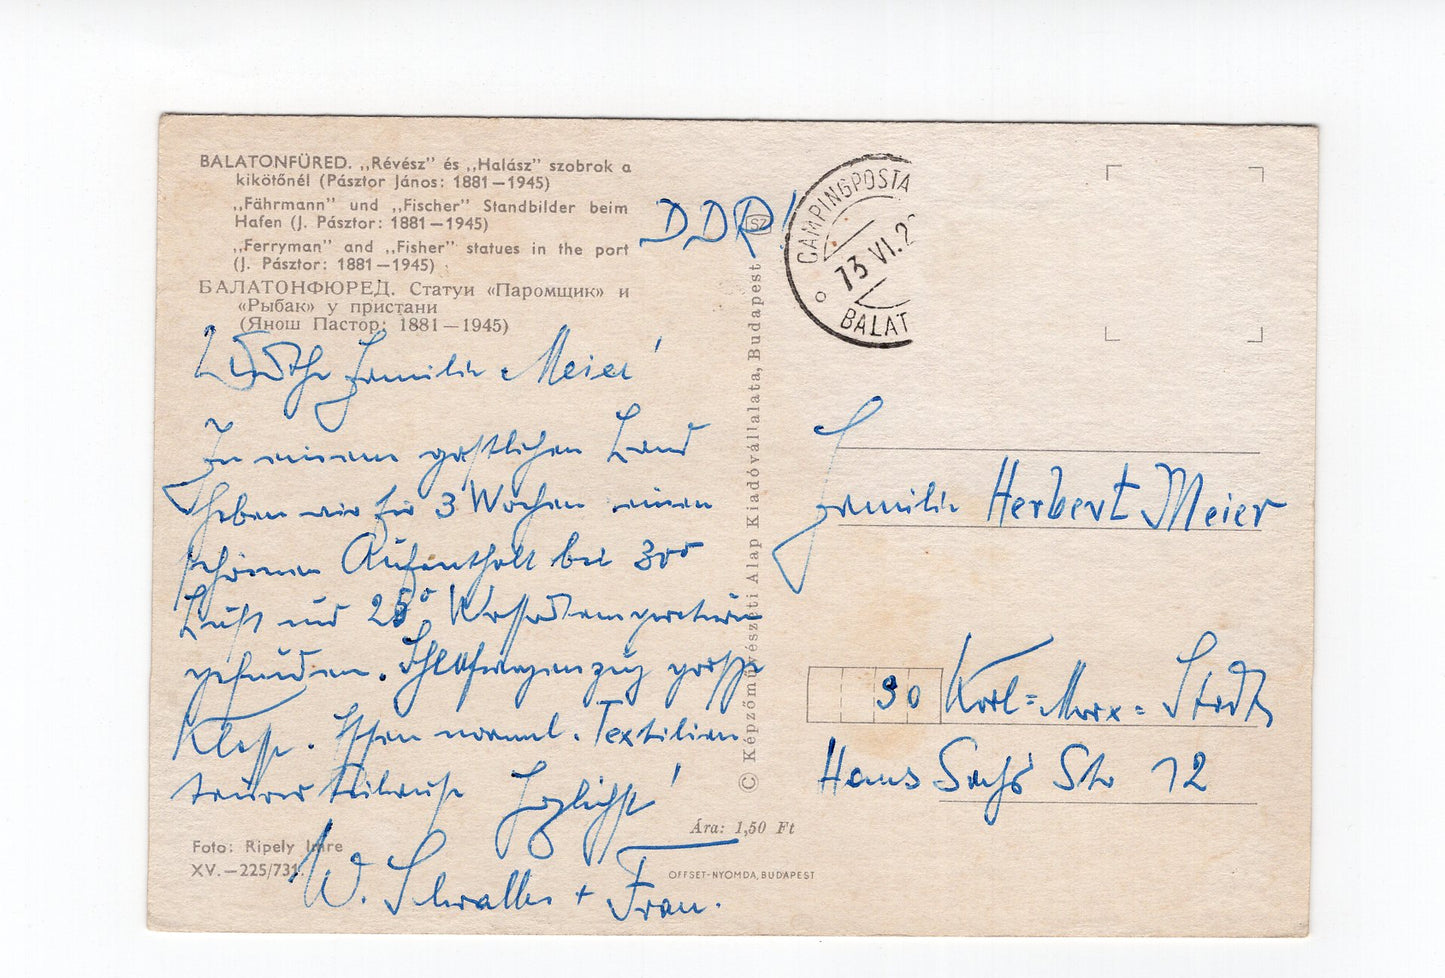 BALATONFÜRED. „Révész” és „Halász” szobrok a
kikötőnél (Pásztor János: 1881—1945)
„Fährmann” und „Fischer” Standbilder beim
Hafen (J. Pásztor: 1881—1945)
„Ferryman” and „Fisher” statues in the port
(J. Pásztor: 1881—1945)
БАЛАТОНФЮРЕД. Статуи «Паромщик» и
«Рыбак» у пристани
(Янош Пастор: 1881—1945)
DDR!
SZ
CAMPINGPOSTA
73 VI. 2
BALAT
Familie Meier!
In einem gastlichen Land
haben wir für 3 Wochen einen
schönen Aufenthalt bei 30°
Luft und 25° Wassertemperatur
gefunden. Schlafwagenzug große
Klasse. Essen normal. Textilien
teurer
Herzlichst!
W. + Frau.
Foto: Ripely Imre
XV.—225/731.
Ára: 1,50 Ft
OFFSET-NYOMDA, BUDAPEST
© Képzőművészeti Alap Kiadóvállalata, Budapest
Familie Herbert Meier
90 Karl-Marx-Stadt
Hans Sachs Str 12